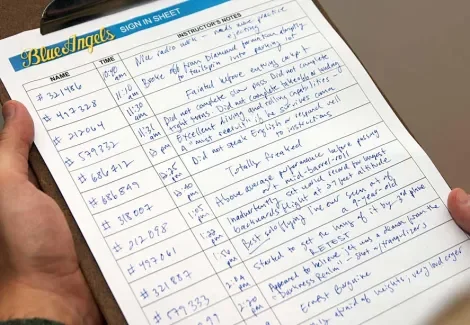 Blue Angels SIGN IN SHEET
NAME TIME INSTRUCTOR'S NOTES
# 321486 10:40 am Nice radio work - needs more practice ejecting
# 492328 11:10 am Broke off from Diamond formation abruptly to tailspin into parking
# 212064 11:30 am Fainted before entering cockpit
# 579732 11:31 am Did not complete slow pass. Did not complete right turns. Did not complete takeoffs or landing
# 686712 Excellent diving and rolling capabilities - A "must recruit" if he survives coma
# 686899 Did not speak English or respond well to instructions
# 318007 Totally freaked
# 212098 1:05 Above average performance before passing out mid-barrel-roll
# 497061 Inadvertently set world record for longest backwards flight at >7 feet altitude
# 321887 Best solo flying I've ever seen out of a 9-year-old
# 579333 Started to get the hang of it by 3rd plane RETEST
2:20 Appeared to believe jet was a demon from the "Darkness Realm" - shot w/ tranquilizers
Ernest Borgnine
afraid of heights, very loud